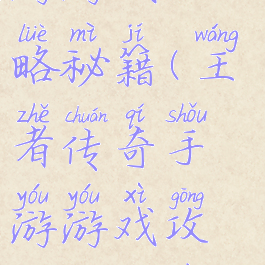 lüè mì jí wáng
略秘籍(王
zhě chuán qí shǒu
者传奇手
yóu yóu xì gōng
游游戏攻